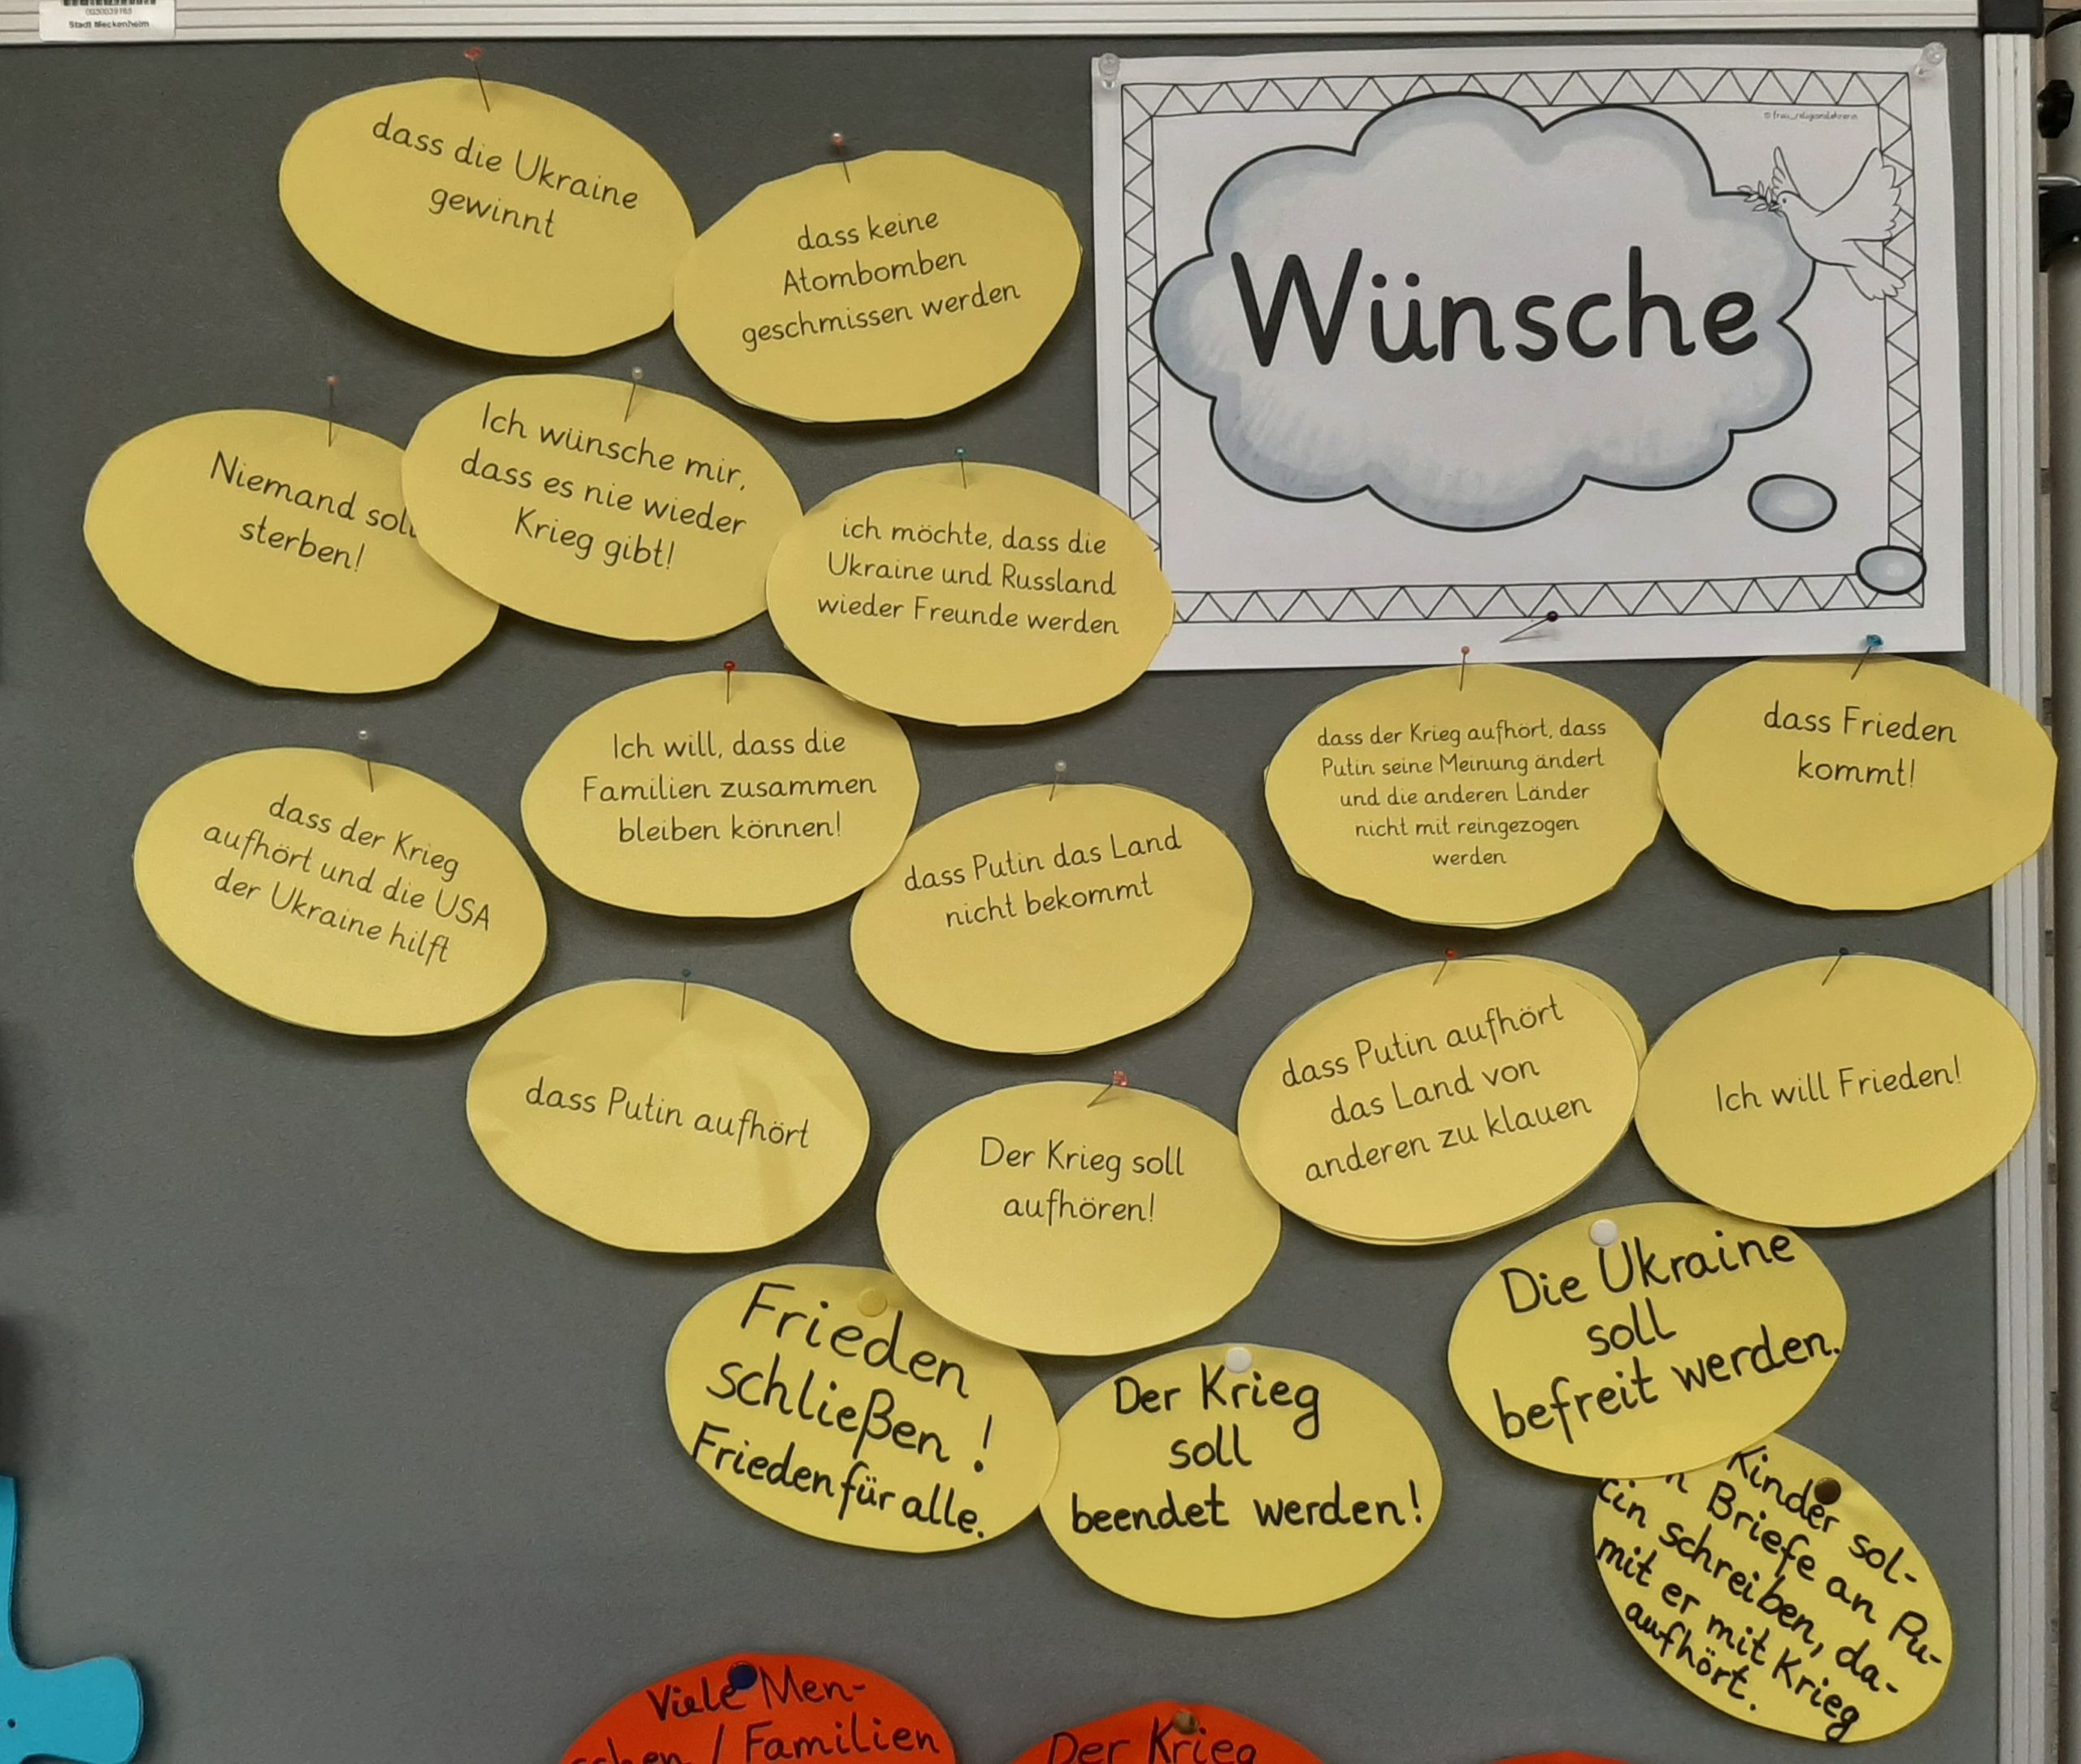 Stadt Meckenheim
Wünsche
dass die Ukraine
gewinnt
dass keine
Atombomben
geschmissen werden
Niemand soll
sterben!
Ich wünsche mir,
dass es nie wieder
Krieg gibt!
ich möchte, dass die
Ukraine und Russland
wieder Freunde werden
Ich will, dass die
Familien zusammen
bleiben können!
dass der Krieg aufhört, dass
Putin seine Meinung ändert
und die anderen Länder
nicht mit reingezogen
werden
dass Frieden
kommt!
dass der Krieg
aufhört und die USA
der Ukraine hilft
dass Putin das Land
nicht bekommt
dass Putin aufhört
Der Krieg soll
aufhören!
dass Putin aufhört
das Land von
anderen zu klauen
Ich will Frieden!
Frieden
schließen!
Frieden für alle.
Der Krieg
soll
beendet werden!
Die Ukraine
soll
befreit werden.
Kinder sol-
n Briefe an Pu-
tin schreiben, da-
mit er mit Krieg
aufhört.
Viele Men-
schen / Familien
Der Krieg